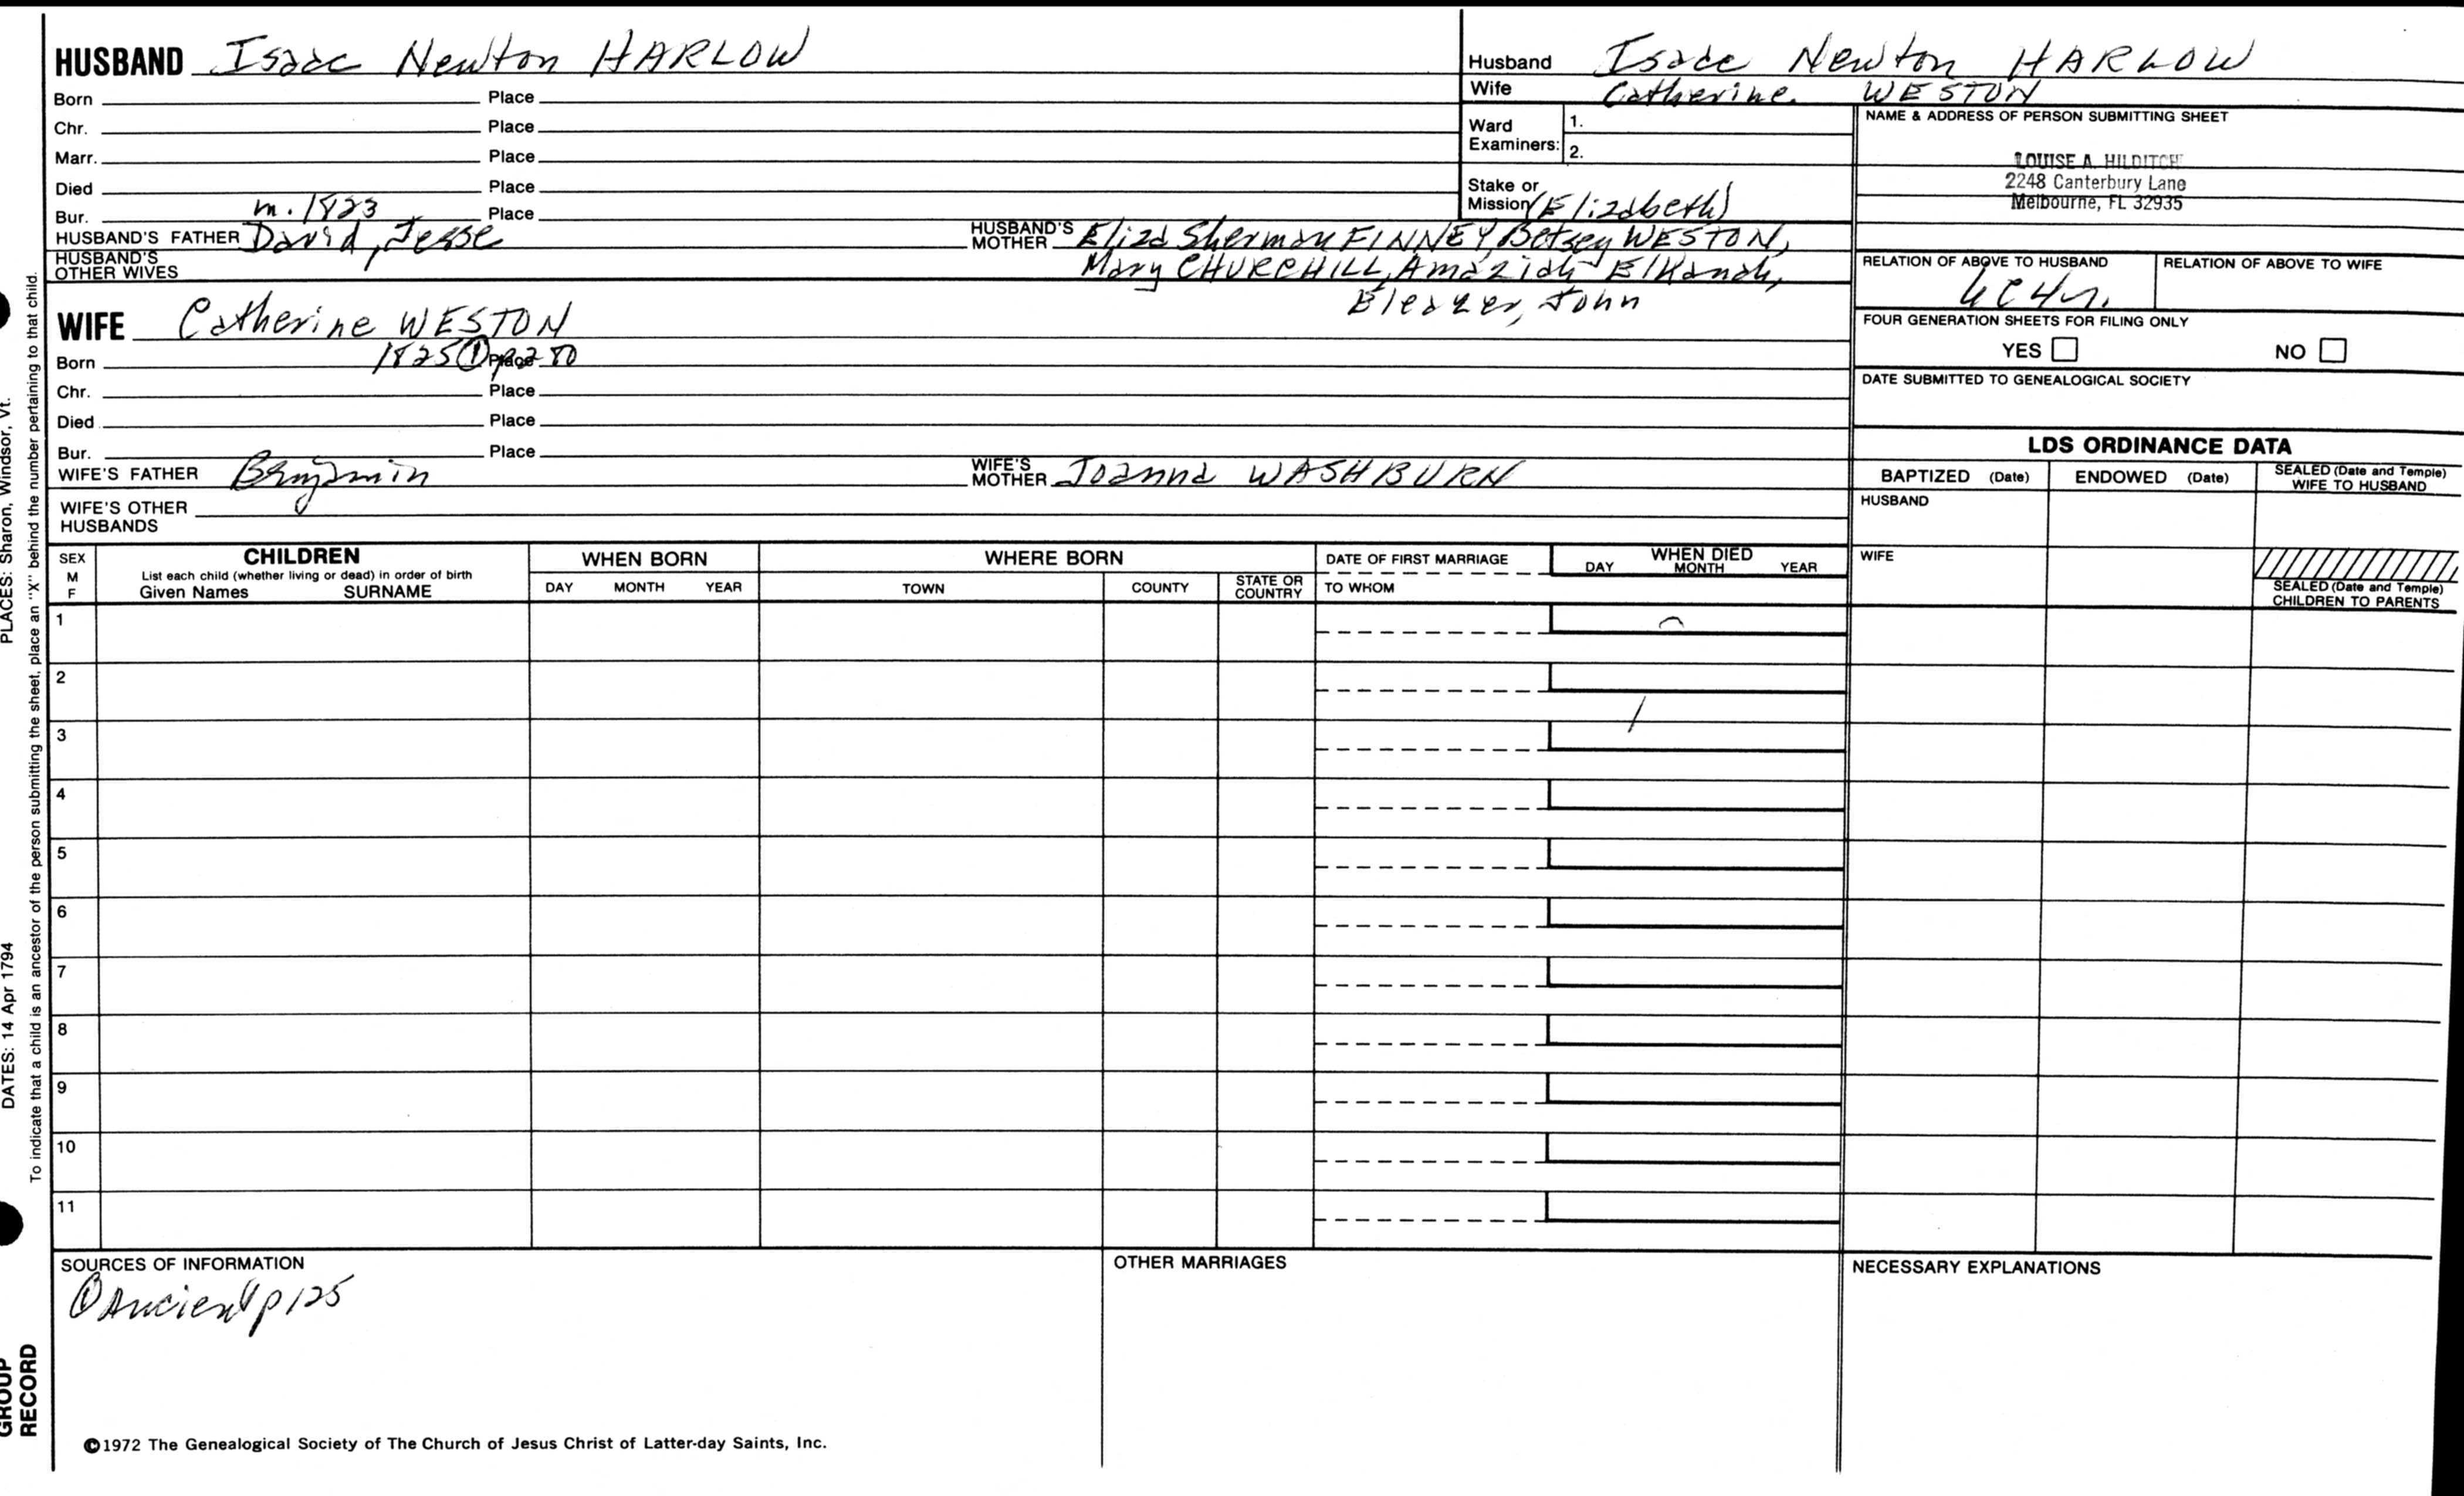 HUSBAND Isaac Newton HARLOW
Born Place
Chr. Place
Marr. Place
Died Place
m. 1823
Bur. Place
HUSBAND'S FATHER David, Jesse HUSBAND'S MOTHER Eliza Sherman FINNEY, Betsey WESTON,
(Elizabeth)
HUSBAND'S OTHER WIVES Mary CHURCHILL, Amaziah Elkanah,
Eleazer, John
WIFE Catherine WESTON
Born 1825 ① Place
Chr. Place
Died Place
Bur. Place
WIFE'S FATHER Benjamin WIFE'S MOTHER Joanna WASHBURN
WIFE'S OTHER HUSBANDS
Husband Isaac Newton HARLOW
Wife Catherine WESTON
Ward Examiners: 1.
2.
Stake or Mission
NAME & ADDRESS OF PERSON SUBMITTING SHEET
LOUISE A. HILDITCH
2248 Canterbury Lane
Melbourne, FL 32935
RELATION OF ABOVE TO HUSBAND RELATION OF ABOVE TO WIFE
FOUR GENERATION SHEETS FOR FILING ONLY
YES NO
DATE SUBMITTED TO GENEALOGICAL SOCIETY
LDS ORDINANCE DATA
BAPTIZED (Date) ENDOWED (Date) SEALED (Date and Temple) WIFE TO HUSBAND
HUSBAND
WIFE
SEALED (Date and Temple) CHILDREN TO PARENTS
SEX M F
CHILDREN
List each child (whether living or dead) in order of birth
Given Names SURNAME
WHEN BORN
DAY MONTH YEAR
WHERE BORN
TOWN COUNTY STATE OR COUNTRY
DATE OF FIRST MARRIAGE
TO WHOM
WHEN DIED
DAY MONTH YEAR
1
2
3
4
5
6
7
8
9
10
11
SOURCES OF INFORMATION
① Ancient p125
OTHER MARRIAGES
NECESSARY EXPLANATIONS
©1972 The Genealogical Society of The Church of Jesus Christ of Latter-day Saints, Inc.
PLACES: Sharon, Windsor, Vt.
DATES: 14 Apr 1794
To indicate that a child is an ancestor of the person submitting the sheet, place an "X" behind the number pertaining to that child.
GROUP
RECORD